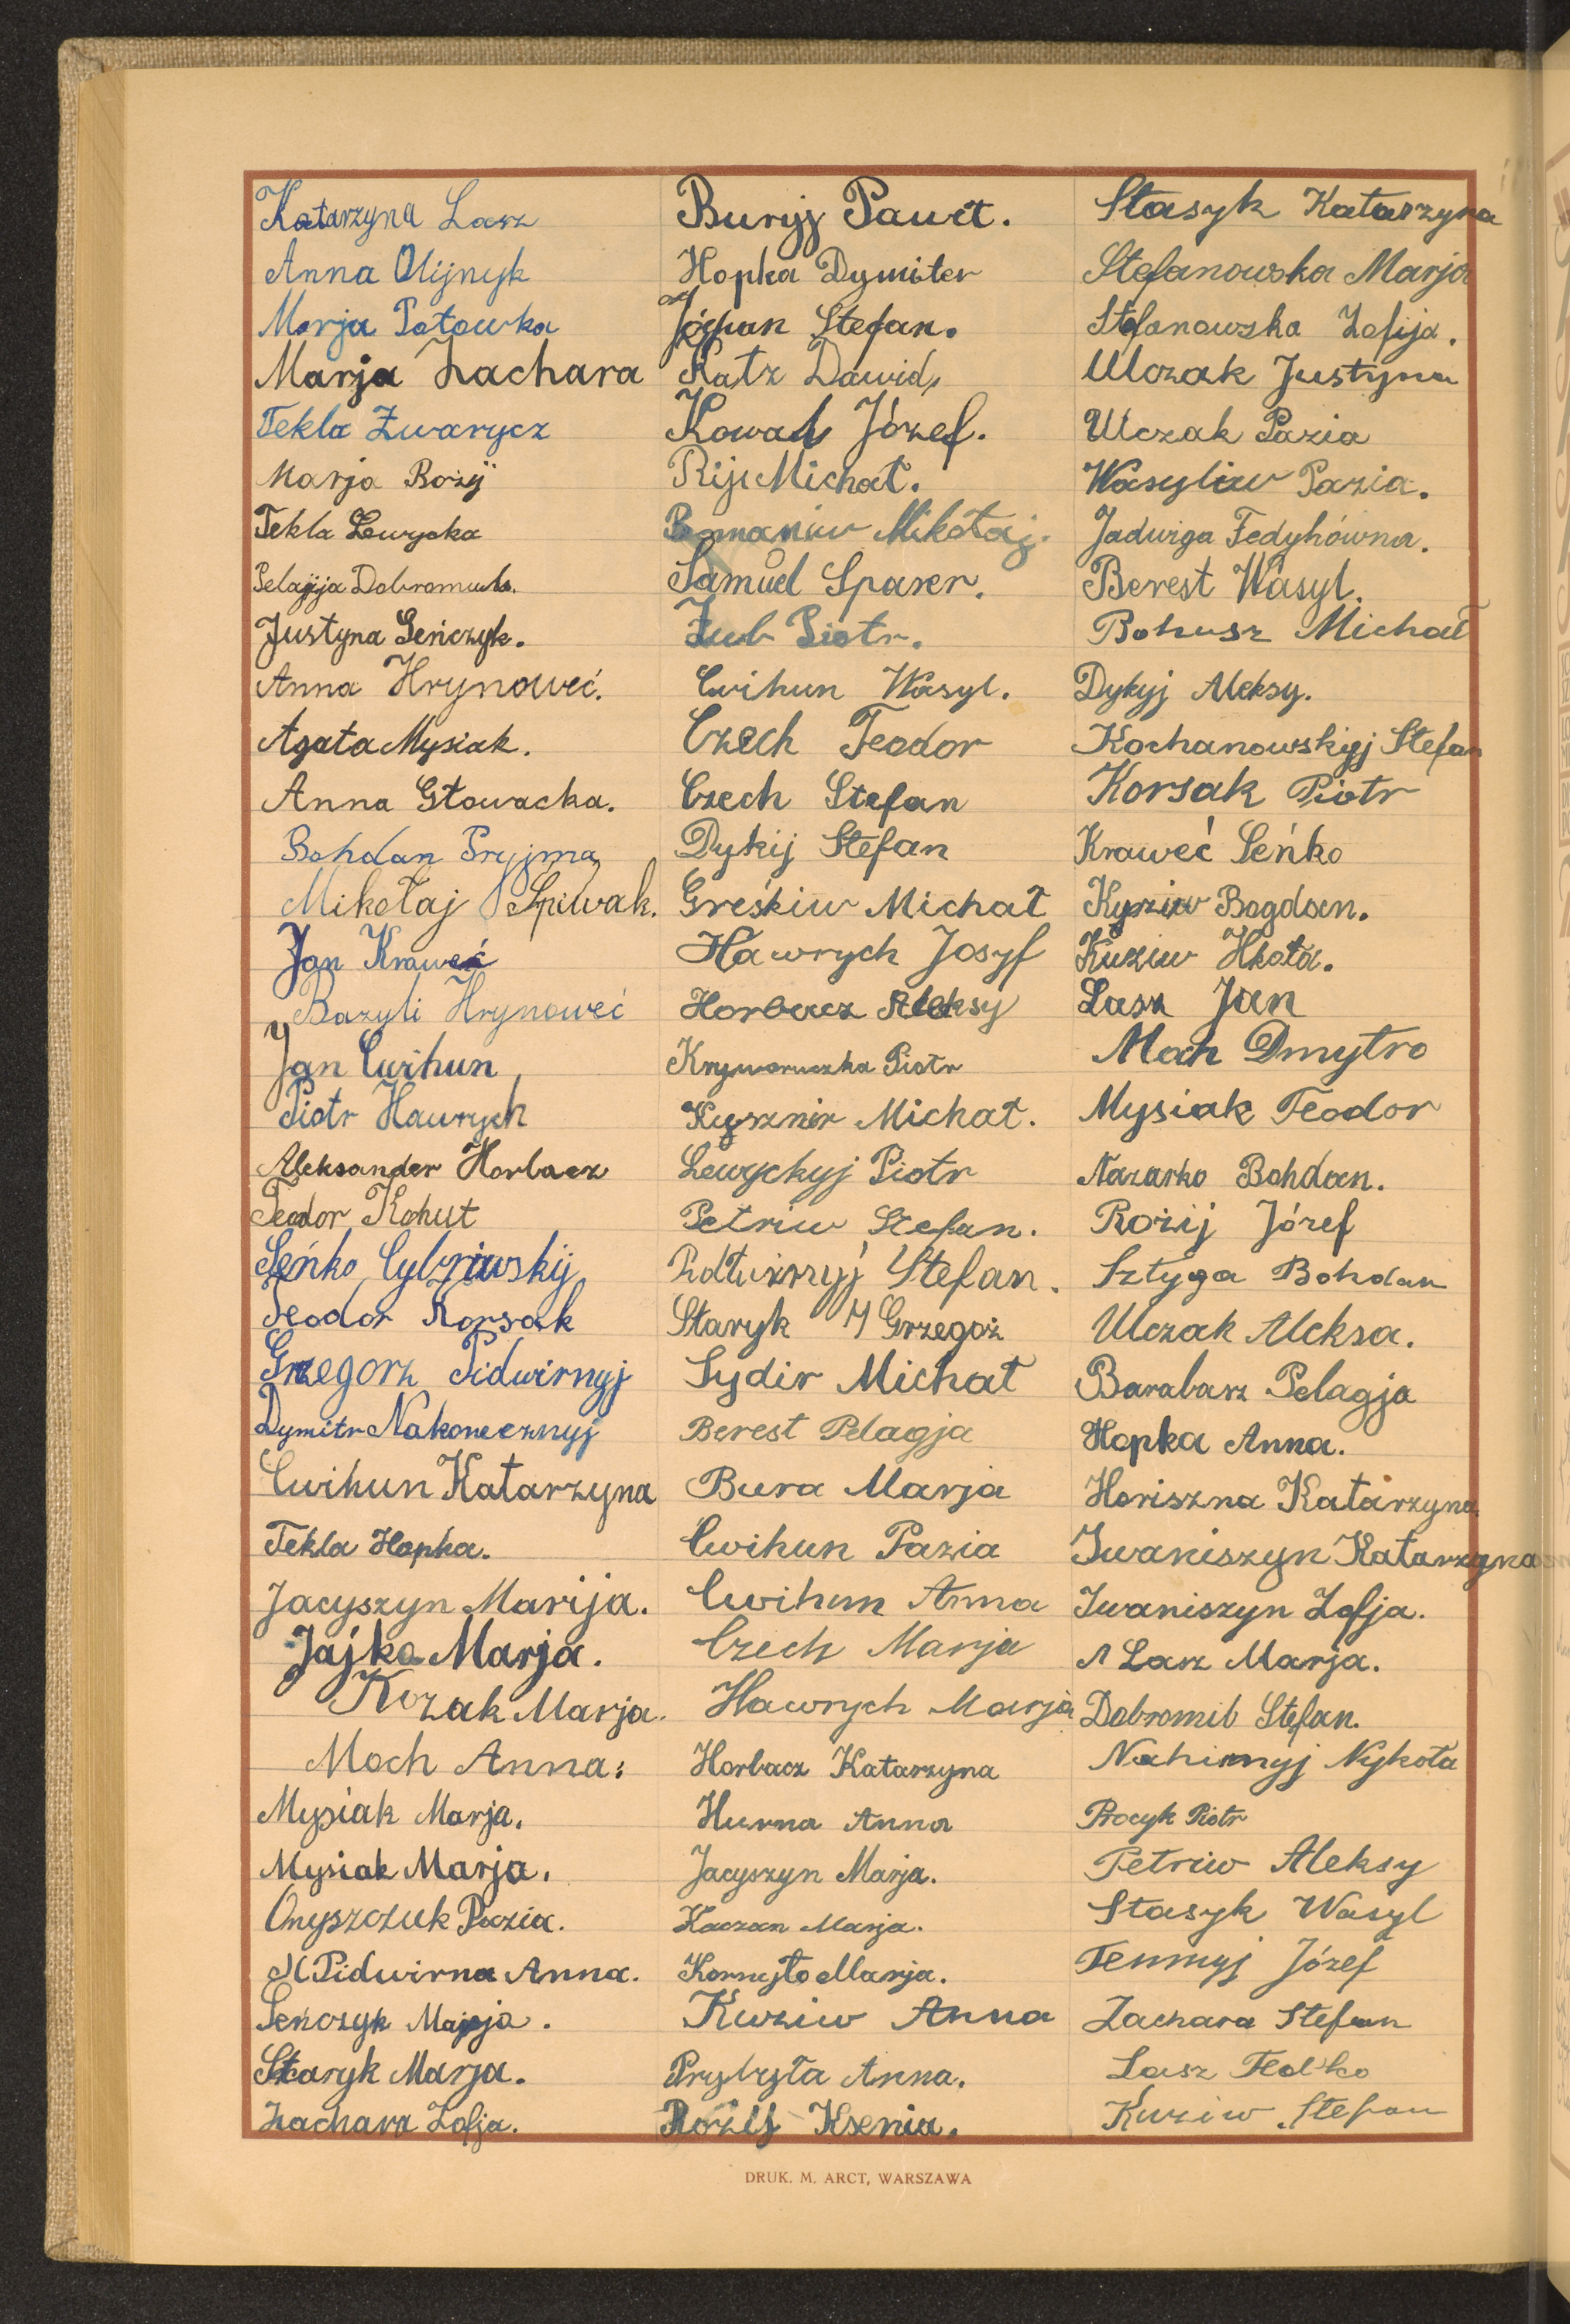 Katarzyna Lasz
Anna Olijnyk
Marja Potowka
Marja Zachara
Tekla Zwarycz
Marja Bożyj
Tekla Lewycka
Pelagija
Justyna Seńczyk.
Anna Hrynoweć.
Agata Mysiak.
Anna Głowacka.
Bohdan Pryjma
Mikołaj Spiwak.
Jan Kraweć
Bazyli Hrynoweć
Jan Cwihun
Piotr Hawrych
Aleksander Horbacz
Teodor Kohut
Seńko Cybriwskij
Teodor Korsak
Grzegorz Pidwirnyj
Dymitr Nakonecznyj
Cwihun Katarzyna
Tekla Hopka.
Jacyszyn Marija.
Jajko Marja.
Kozak Marja.
Moch Anna.
Mysiak Marja.
Mysiak Marja.
Onyszczuk Pazia.
Pidwirna Anna.
Seńczyk Marja.
Staryk Marja.
Zachara Zofja.
Buryj Paweł.
Hopka Dymiter
Stefan.
Katz Dawid,
Kowal Józef.
Rij Michał.
Romaniw Mikołaj.
Samuel Sparer.
Żub Piotr.
Cwihun Wasyl.
Czech Teodor
Czech Stefan
Dykij Stefan
Greśkiw Michał
Hawrych Josyf
Horbacz Aleksy
Kryworuczka Piotr
Kysznir Michał.
Lewyckyj Piotr
Petriw Stefan.
Stefan.
Staryk Grzegoż
Sydir Michał
Berest Pelagja
Bura Marja
Cwihun Pazia
Cwihun Anna
Czech Marja
Hawrych Marja
Horbacz Katarzyna
Hurna Anna
Jacyszyn Marja.
Kaczan Marja.
Kornyło Marja.
Kuziw Anna
Prybyła Anna.
Rożij Ksenia.
Stasyk Katarzyna
Stefanowska Marja
Stefanowska Zofija.
Ulczak Justyna
Ulczak Pazia
Wasyliw Pazia.
Jadwiga Fedykówna.
Berest Wasyl.
Bohusz Michał
Dykyj Aleksy.
Kochanowskyj Stefan
Korsak Piotr
Kraweć Seńko
Kyziw Bogdan.
Kuziw
Lasz Jan
Moch Dmytro
Mysiak Teodor
Nazarko Bohdan.
Rożij Józef
Sztyga Bohdan
Ulczak Aleksa.
Barabasz Pelagja
Hopka Anna.
Horiszna Katarzyna
Iwaniszyn Katarzyna
Iwaniszyn Zofja.
Lasz Marja.
Dobromil Stefan.
Nahirnyj Nykoła
Procyk Piotr
Petriw Aleksy
Stasyk Wasyl
Temnyj Józef
Zachara Stefan
Lasz Fedko
Kuziw Stefan
DRUK. M. ARCT, WARSZAWA